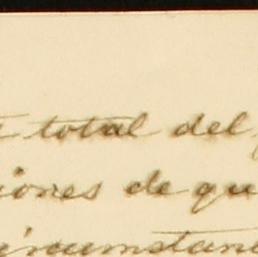 total del
iones de qu
ircunstan